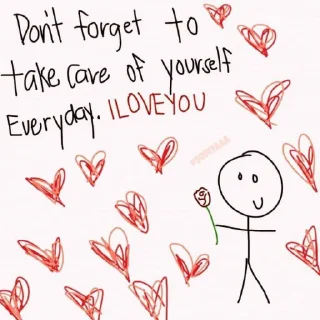 Don't forget to
take care of yourself
Everyday. I LOVE YOU